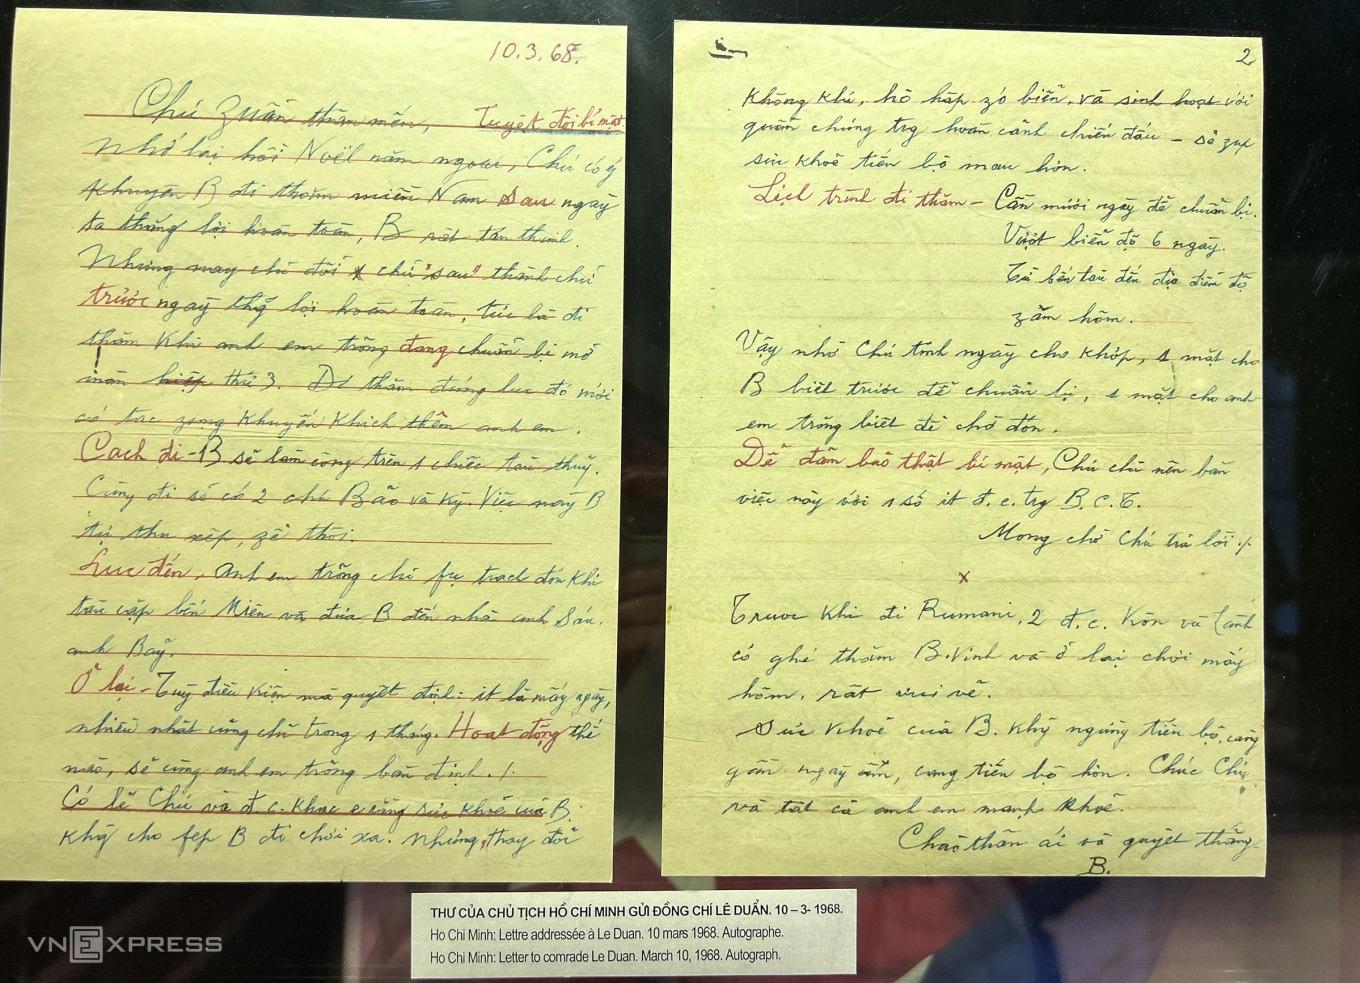 10.3.68.
Chú Zuẩn thân mến, Tuyệt đối bí mật
Nhớ lại hồi Noël năm ngoái, Chú có ý
khuyên B đi thăm miền Nam sau ngày
ta thắng lợi hoàn toàn, B rất tán thành.
Nhưng nay chỉ đổi chữ "sau" thành chữ
trước ngày thắng lợi hoàn toàn, tức là đi
thăm khi anh em trõng đang chuẩn bị mở
màn hiệp thứ 3. Đi thăm đúng lúc đó mới
có tác zụng khuyến khích thêm anh em.
Cách đi - B sẽ làm công trên 1 chiếc tàu thuỷ.
Cùng đi sẽ có 2 chú Bảo và Kỳ. Việc này B
tự thu xếp, zễ thôi.
Lúc đến, anh em trõng chỉ fụ trách đón khi
tàu cập bến Miên và đưa B đến nhà anh Sáu,
anh Bảy.
Ở lại - Tuỳ điều kiện mà quyết định: ít là mấy ngày,
nhiều nhất cũng chỉ trong 1 tháng. Hoạt động thế
nào, sẽ cùng anh em trõng bàn định./.
Có lẽ Chú và đ.c. khác e rằng sức khoẻ của B
khg cho fép B đi chơi xa. Nhưng, thay đổi
2
không khí, hô hấp zó biển, và sinh hoạt với
quần chúng trg hoàn cảnh chiến đấu - sẽ zup
sức khoẻ tiến bộ mau hơn.
Lịch trình đi thăm - Cần mười ngày để chuẩn bị.
Vượt biển độ 6 ngày.
Từ bến tàu đến địa điểm độ
zăm hôm.
Vậy nhờ Chú tính ngày cho khớp, 1 mặt cho
B biết trước để chuẩn bị, 1 mặt cho anh
em trõng biết để chờ đón.
Để đảm bảo thật bí mật, Chú chỉ nên bàn
việc này với 1 số ít đ.c. trg B.C.T.
Mong chờ Chú trả lời./.
x
Trước khi đi Rumani, 2 đ.c. Kôn và Lãnh
có ghé thăm B. Vinh và ở lại chơi mấy
hôm, rất vui vẻ.
Sức khoẻ của B. khg ngừng tiến bộ, càng
gần ngày ấm, càng tiến bộ hơn. Chúc Chú
và tất cả anh em mạnh khoẻ.
Chào thân ái và quyết thắng
B.
THƯ CỦA CHỦ TỊCH HỒ CHÍ MINH GỬI ĐỒNG CHÍ LÊ DUẨN. 10 – 3- 1968.
Ho Chi Minh: Lettre addressée à Le Duan. 10 mars 1968. Autographe.
Ho Chi Minh: Letter to comrade Le Duan. March 10, 1968. Autograph.
VNEXPRESS